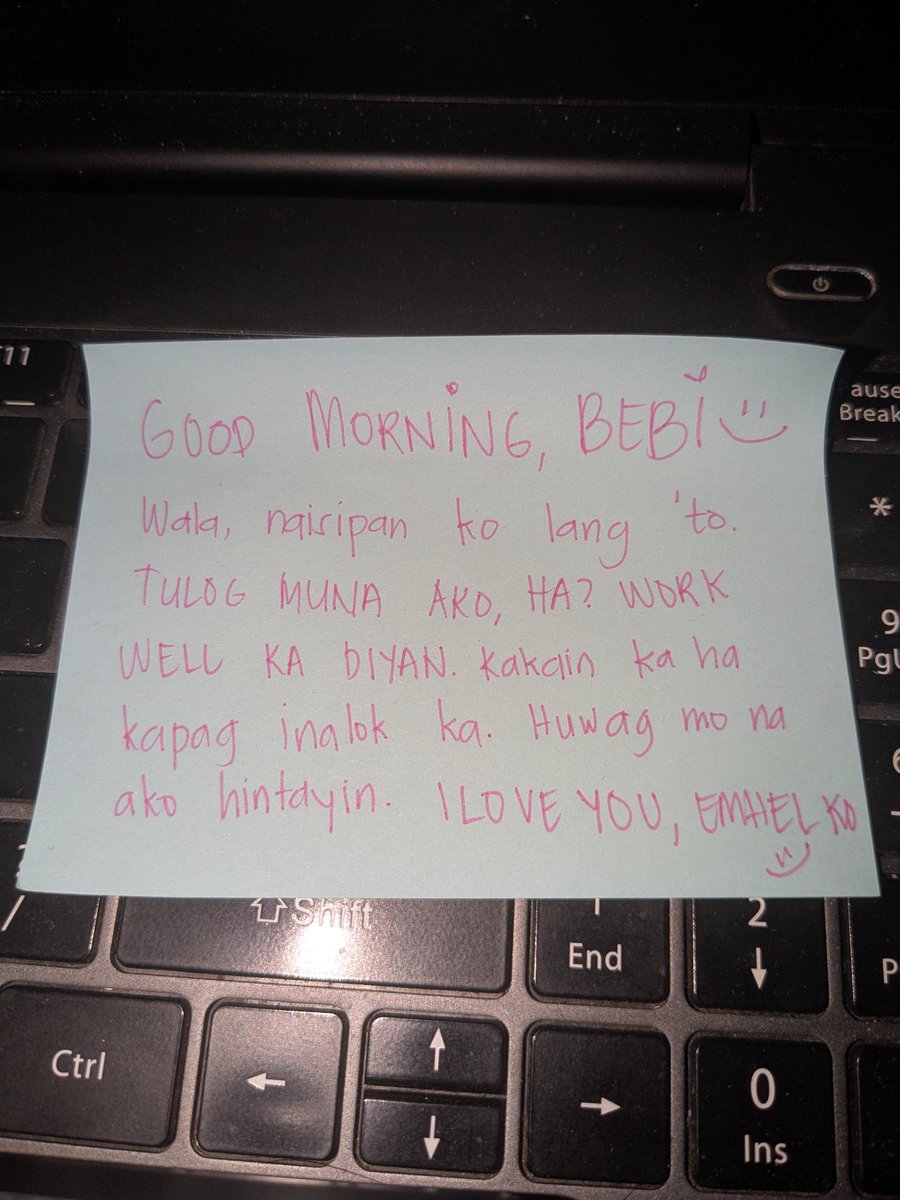 F11
ause
Break
GOOD MORNING, BEBI
Wala, naisipan ko lang 'to.
TULOG MUNA AKO, HA? WORK
WELL KA DIYAN. Kakain ka ha
kapag inalok ka. Huwag mo na
ako hintayin. I LOVE YOU, EMHEL KO
*
9
PgU
/
Shift
1
End
2
↓
P
Ctrl
←
↑
↓
→
0
Ins